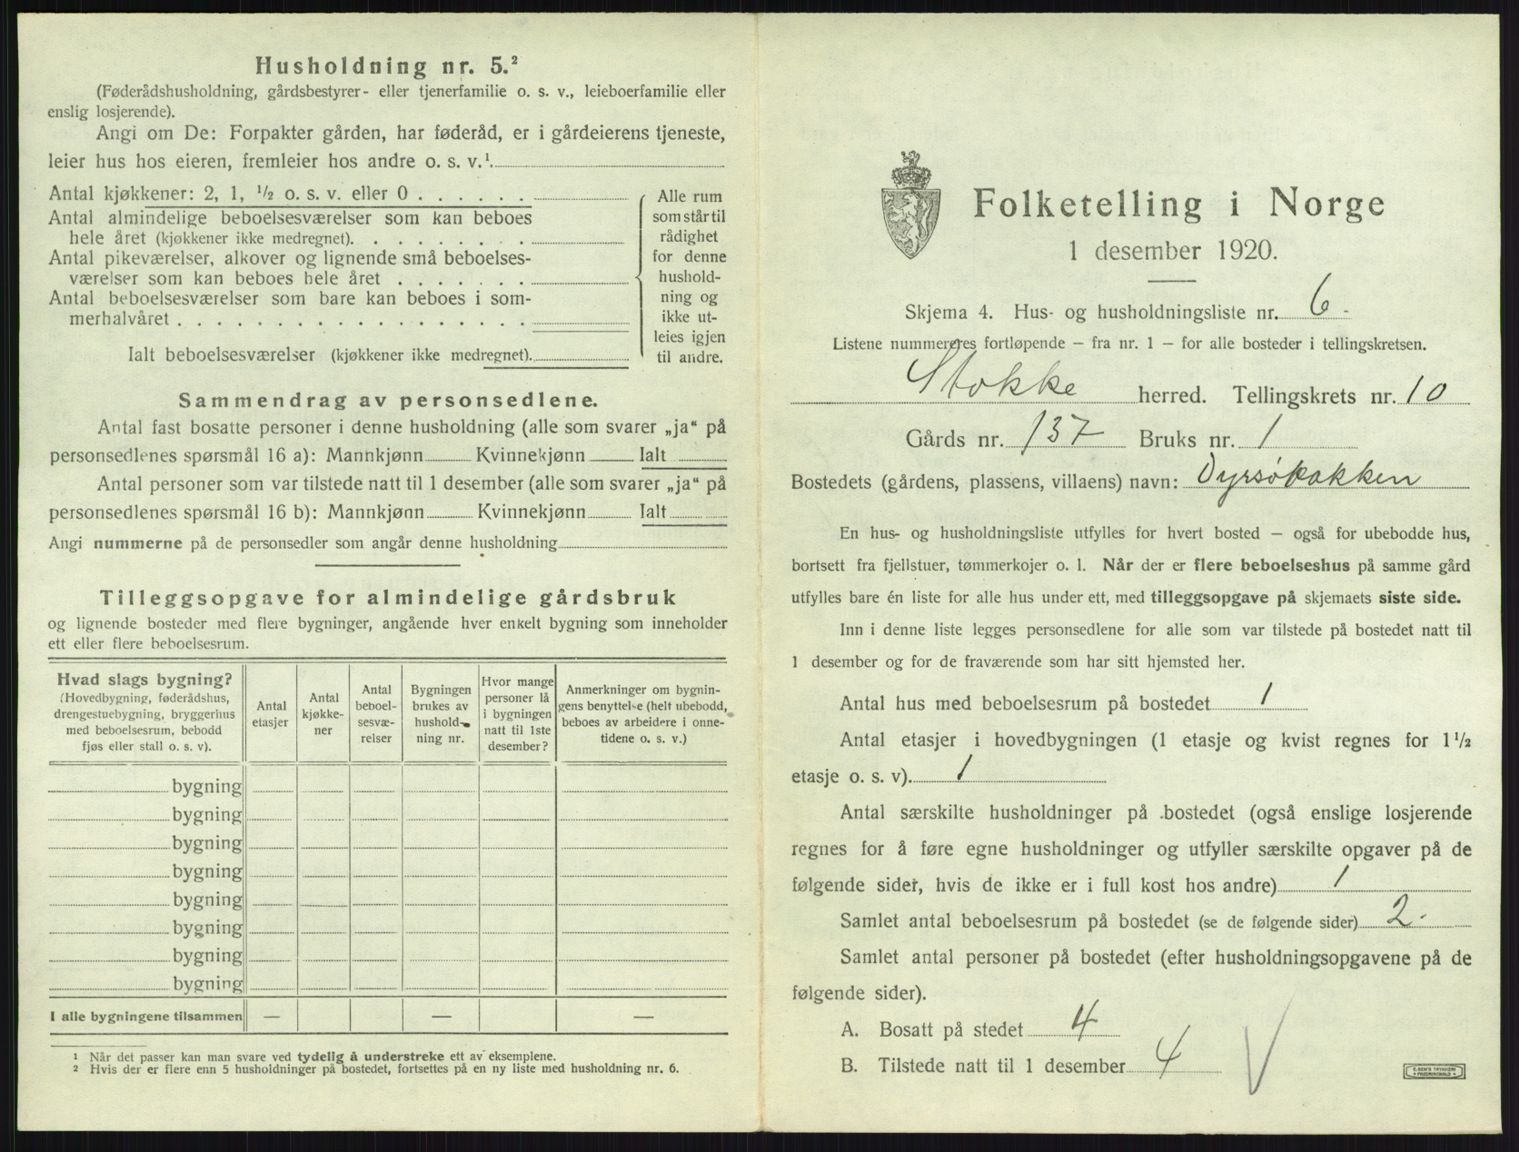 Husholdning nr. 5.²
(Føderådshusholdning, gårdsbestyrer- eller tjenerfamilie o. s. v., leieboerfamilie eller
enslig losjerende).
Angi om De: Forpakter gården, har føderåd, er i gårdeierens tjeneste,
leier hus hos eieren, fremleier hos andre o. s. v.¹
Antal kjøkkener: 2, 1, ½ o. s. v. eller 0
Antal almindelige beboelsesværelser som kan beboes
hele året (kjøkkener ikke medregnet).
Antal pikeværelser, alkover og lignende små beboelses-
værelser som kan beboes hele året
Antal beboelsesværelser som bare kan beboes i som-
merhalvåret
Ialt beboelsesværelser (kjøkkener ikke medregnet).
Alle rum
som står til
rådighet
for denne
hushold-
ning og
ikke ut-
leies igjen
til andre.
Sammendrag av personsedlene.
Antal fast bosatte personer i denne husholdning (alle som svarer „ja“ på
personsedlenes spørsmål 16 a): Mannkjønn Kvinnekjønn Ialt
Antal personer som var tilstede natt til 1 desember (alle som svarer „ja“ på
personsedlenes spørsmål 16 b): Mannkjønn Kvinnekjønn Ialt
Angi nummerne på de personsedler som angår denne husholdning
Tilleggsopgave for almindelige gårdsbruk
og lignende bosteder med flere bygninger, angående hver enkelt bygning som inneholder
ett eller flere beboelsesrum.
Hvad slags bygning?
(Hovedbygning, føderådshus,
drengestuebygning, bryggerhus
med beboelsesrum, bebodd
fjøs eller stall o. s. v).
Antal
etasjer
Antal
kjøkke-
ner
Antal
beboel-
sesvæ-
relser
Bygningen
brukes av
hushold-
ning nr.
Hvor mange
personer lå
i bygningen
natt til 1ste
desember?
Anmerkninger om bygnin-
gens benyttelse (helt ubebodd,
beboes av arbeidere i onne-
tidene o. s. v.)
bygning
bygning
bygning
bygning
bygning
bygning
bygning
bygning
I alle bygningene tilsammen — — —
¹ Når det passer kan man svare ved tydelig å understreke ett av eksemplene.
² Hvis der er flere enn 5 husholdninger på bostedet, fortsettes på en ny liste med husholdning nr. 6.
Folketelling i Norge
1 desember 1920.
Skjema 4. Hus- og husholdningsliste nr. 6 -
Listene nummereres fortløpende — fra nr. 1 — for alle bosteder i tellingskretsen.
Stokke herred. Tellingskrets nr. 10
Gårds nr. 137 Bruks nr. 1
Bostedets (gårdens, plassens, villaens) navn: Dyrsøbakken
En hus- og husholdningsliste utfylles for hvert bosted — også for ubebodde hus,
bortsett fra fjellstuer, tømmerkojer o. l. Når der er flere beboelseshus på samme gård
utfylles bare én liste for alle hus under ett, med tilleggsopgave på skjemaets siste side.
Inn i denne liste legges personsedlene for alle som var tilstede på bostedet natt til
1 desember og for de fraværende som har sitt hjemsted her.
Antal hus med beboelsesrum på bostedet 1
Antal etasjer i hovedbygningen (1 etasje og kvist regnes for 1½
etasje o. s. v). 1
Antal særskilte husholdninger på bostedet (også enslige losjerende
regnes for å føre egne husholdninger og utfyller særskilte opgaver på de
følgende sider, hvis de ikke er i full kost hos andre) 1
Samlet antal beboelsesrum på bostedet (se de følgende sider) 2.
Samlet antal personer på bostedet (efter husholdningsopgavene på de
følgende sider).
A. Bosatt på stedet 4
B. Tilstede natt til 1 desember 4